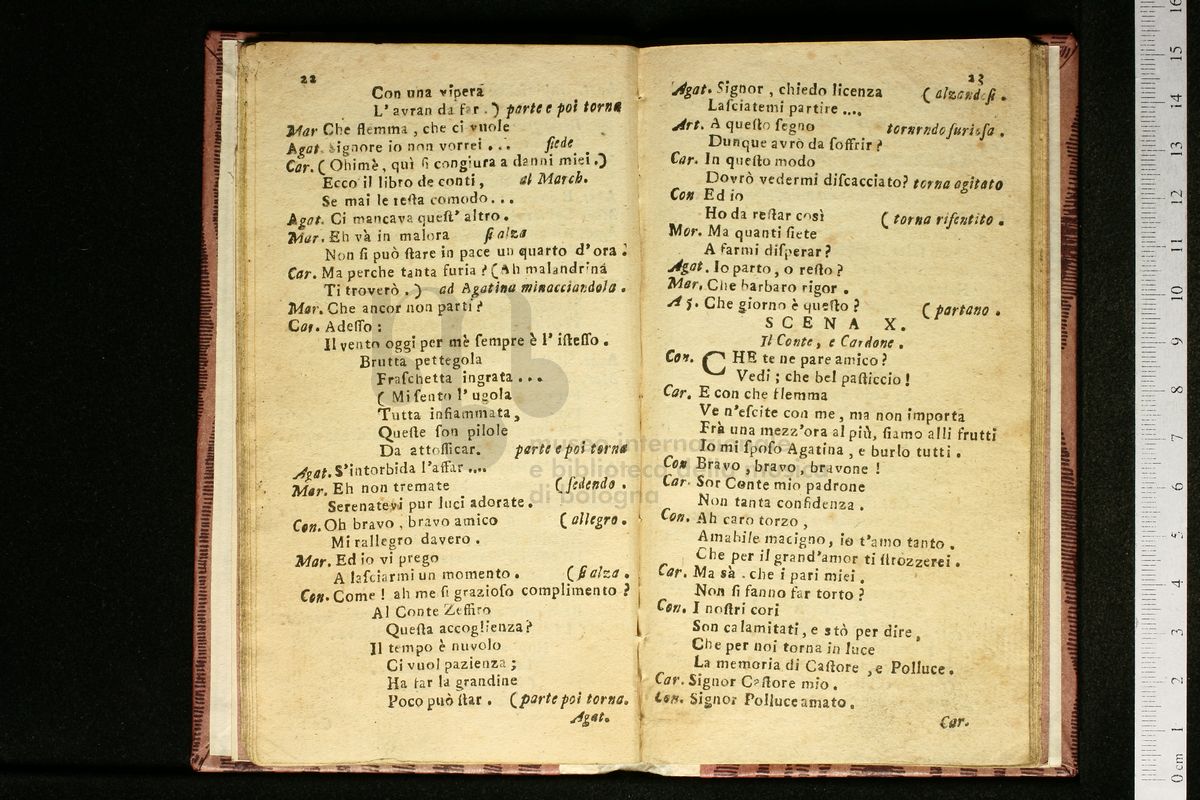 22
Con una vipera
L' avran da far . ) parte e poi torna
Mar Che flemma , che ci vuole
Agat. Signore io non vorrei ... siede
Car. ( Ohimè , quì si congiura a danni miei .)
Ecco il libro de conti , al March.
Se mai le resta comodo ...
Agat. Ci mancava quest' altro .
Mar. Eh và in malora si alza
Non si può stare in pace un quarto d'ora .
Car. Ma perche tanta furia ? ( Ah malandrina
Ti troverò . ) ad Agatina minacciandola .
Mar. Che ancor non parti ?
Car. Adesso :
Il vento oggi per mè sempre è l' istesso .
Brutta pettegola
Fraschetta ingrata ...
( Mi sento l' ugola
Tutta infiammata ,
Queste son pilole
Da attossicar . parte e poi torna
Agat. S'intorbida l'affar ....
Mar. Eh non tremate ( sedendo .
Serenatevi pur luci adorate .
Con. Oh bravo , bravo amico ( allegro .
Mi rallegro davero .
Mar. Ed io vi prego
A lasciarmi un momento . ( si alza .
Con. Come ! ah me si grazioso complimento ?
Al Conte Zeffiro
Questa accoglienza ?
Il tempo è nuvolo
Ci vuol pazienza ;
Ha far la grandine
Poco può star . ( parte poi torna .
Agat.
23
Agat. Signor , chiedo licenza ( alzandosi .
Lasciatemi partire ....
Art. A questo segno tornrndo furiosa .
Dunque avrò da soffrir ?
Car. In questo modo
Dovrò vedermi discacciato ? torna agitato
Con Ed io
Ho da restar così ( torna risentito .
Mor. Ma quanti siete
A farmi disperar ?
Agat. Io parto , o resto ?
Mar. Che barbaro rigor .
A 5. Che giorno è questo ? ( partano .
SCENA X.
Il Conte , e Cardone .
Con. CHE te ne pare amico ?
Vedi ; che bel pasticcio !
Car. E con che flemma
Ve n'escite con me , ma non importa
Frà una mezz'ora al più , siamo alli frutti
Io mi sposo Agatina , e burlo tutti .
Con Bravo , bravo , bravone !
Car. Sor Conte mio padrone
Non tanta confidenza .
Con. Ah caro torzo ,
Amabile macigno , io t'amo tanto .
Che per il grand'amor ti strozzerei .
Car. Ma sà . che i pari miei .
Non si fanno far torto ?
Con. I nostri cori
Son calamitati , e stò per dire ,
Che per noi torna in luce
La memoria di Castore , e Polluce .
Car. Signor Castore mio .
Con. Signor Polluce amato .
Car.
museo internazionale
e biblioteca della musica
di bologna
0 cm 1 2 3 4 5 6 7 8 9 10 11 12 13 14 15 16